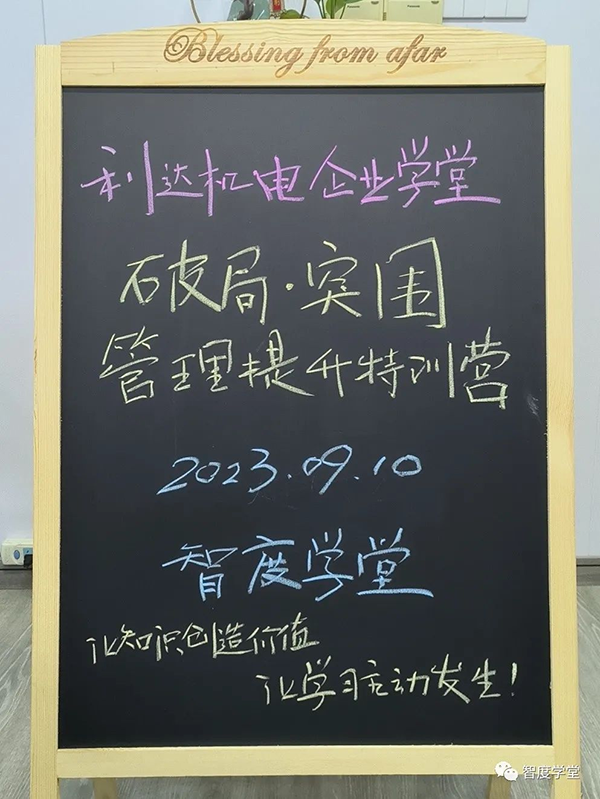 Blessing from afar
利达机电企业学堂
破局·突围
管理提升特训营
2023.09.10
智度学堂
让知识创造价值
让学习主动发生!
智度学堂